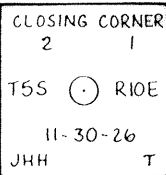 CLOSING CORNER
2 1
T5S R10E
11-30-26
JHH T